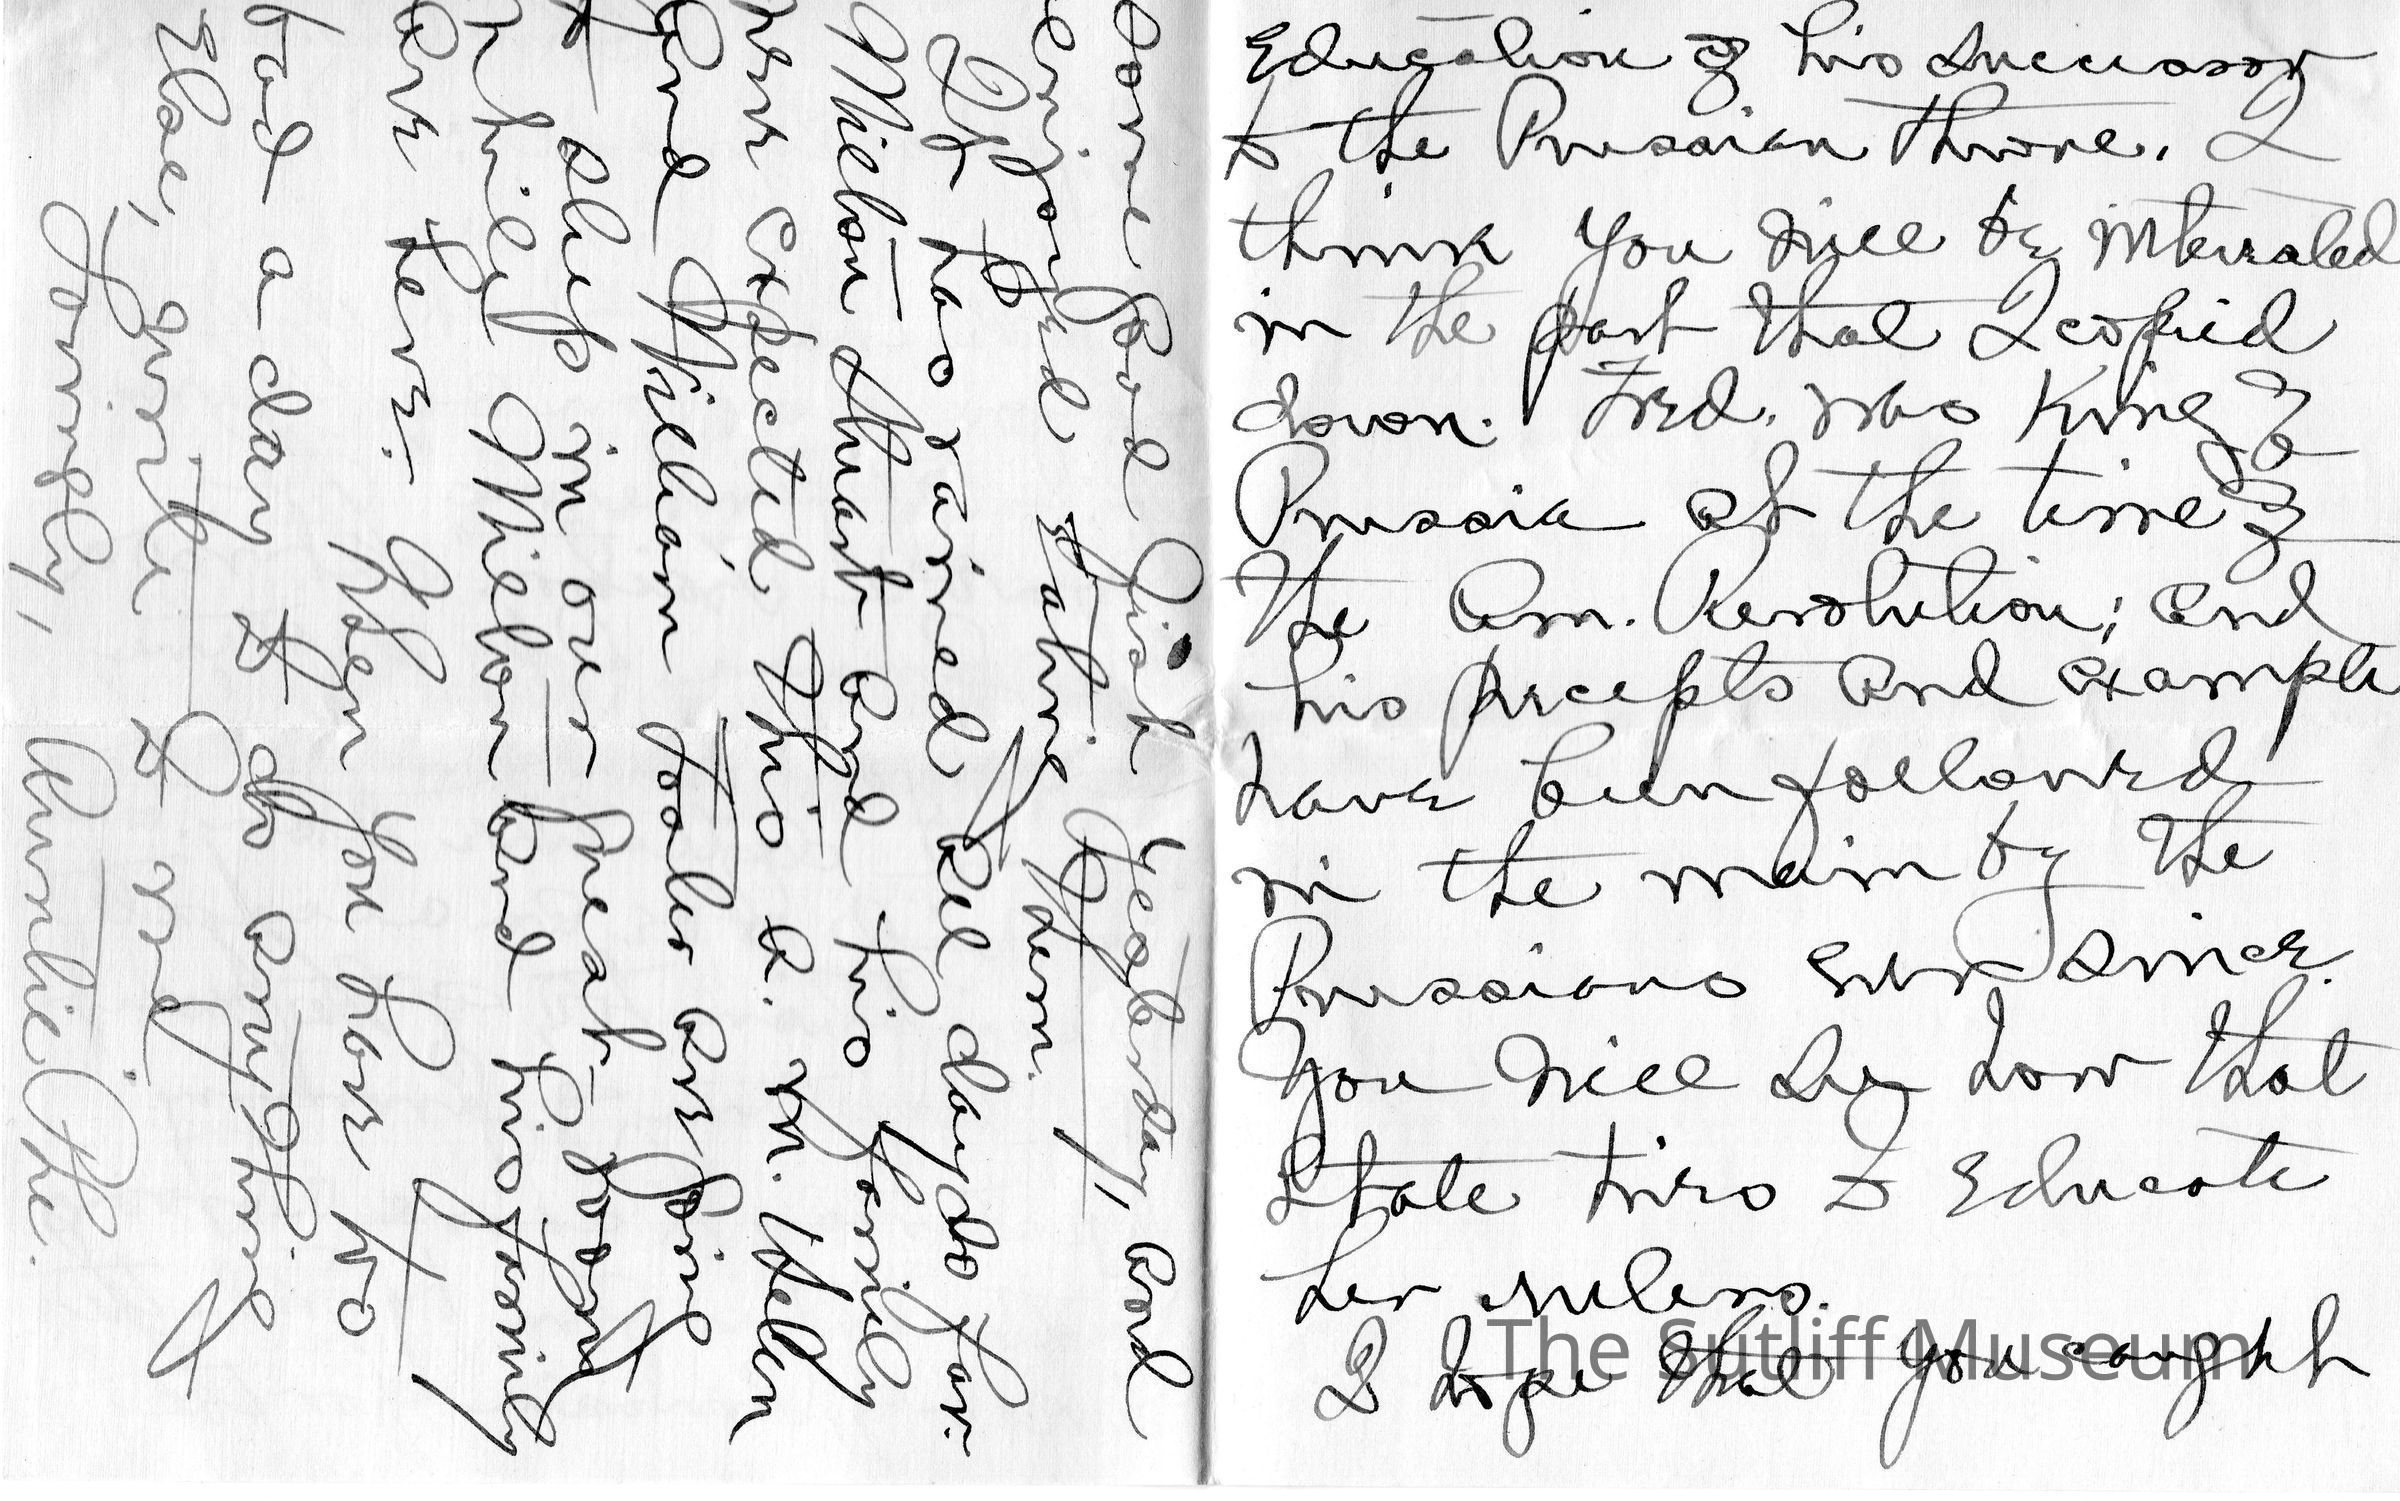 Education of his successor
to the Prussian throne. I
think you will be interested
in the part that I copied
down. Fred. was King of
Prussia at the time of
the Am. Revolution; and
his precepts and example
have been followed
in the main by the
Prussians ever since.
You will see how that
State tries to educate
her rulers.
I hope that you caught
some good fish yesterday, and
enjoyed eating them.
It has rained all day so far.
Milton Stuart and his family
were expected this a. m. Helen
and William Foster are going
to sleep in our great-room
while Milton and his family
are here. When you have to
bad a day to do anything
else, write to me!
Lovingly, Auntie Phe.
The Sutliff Museum